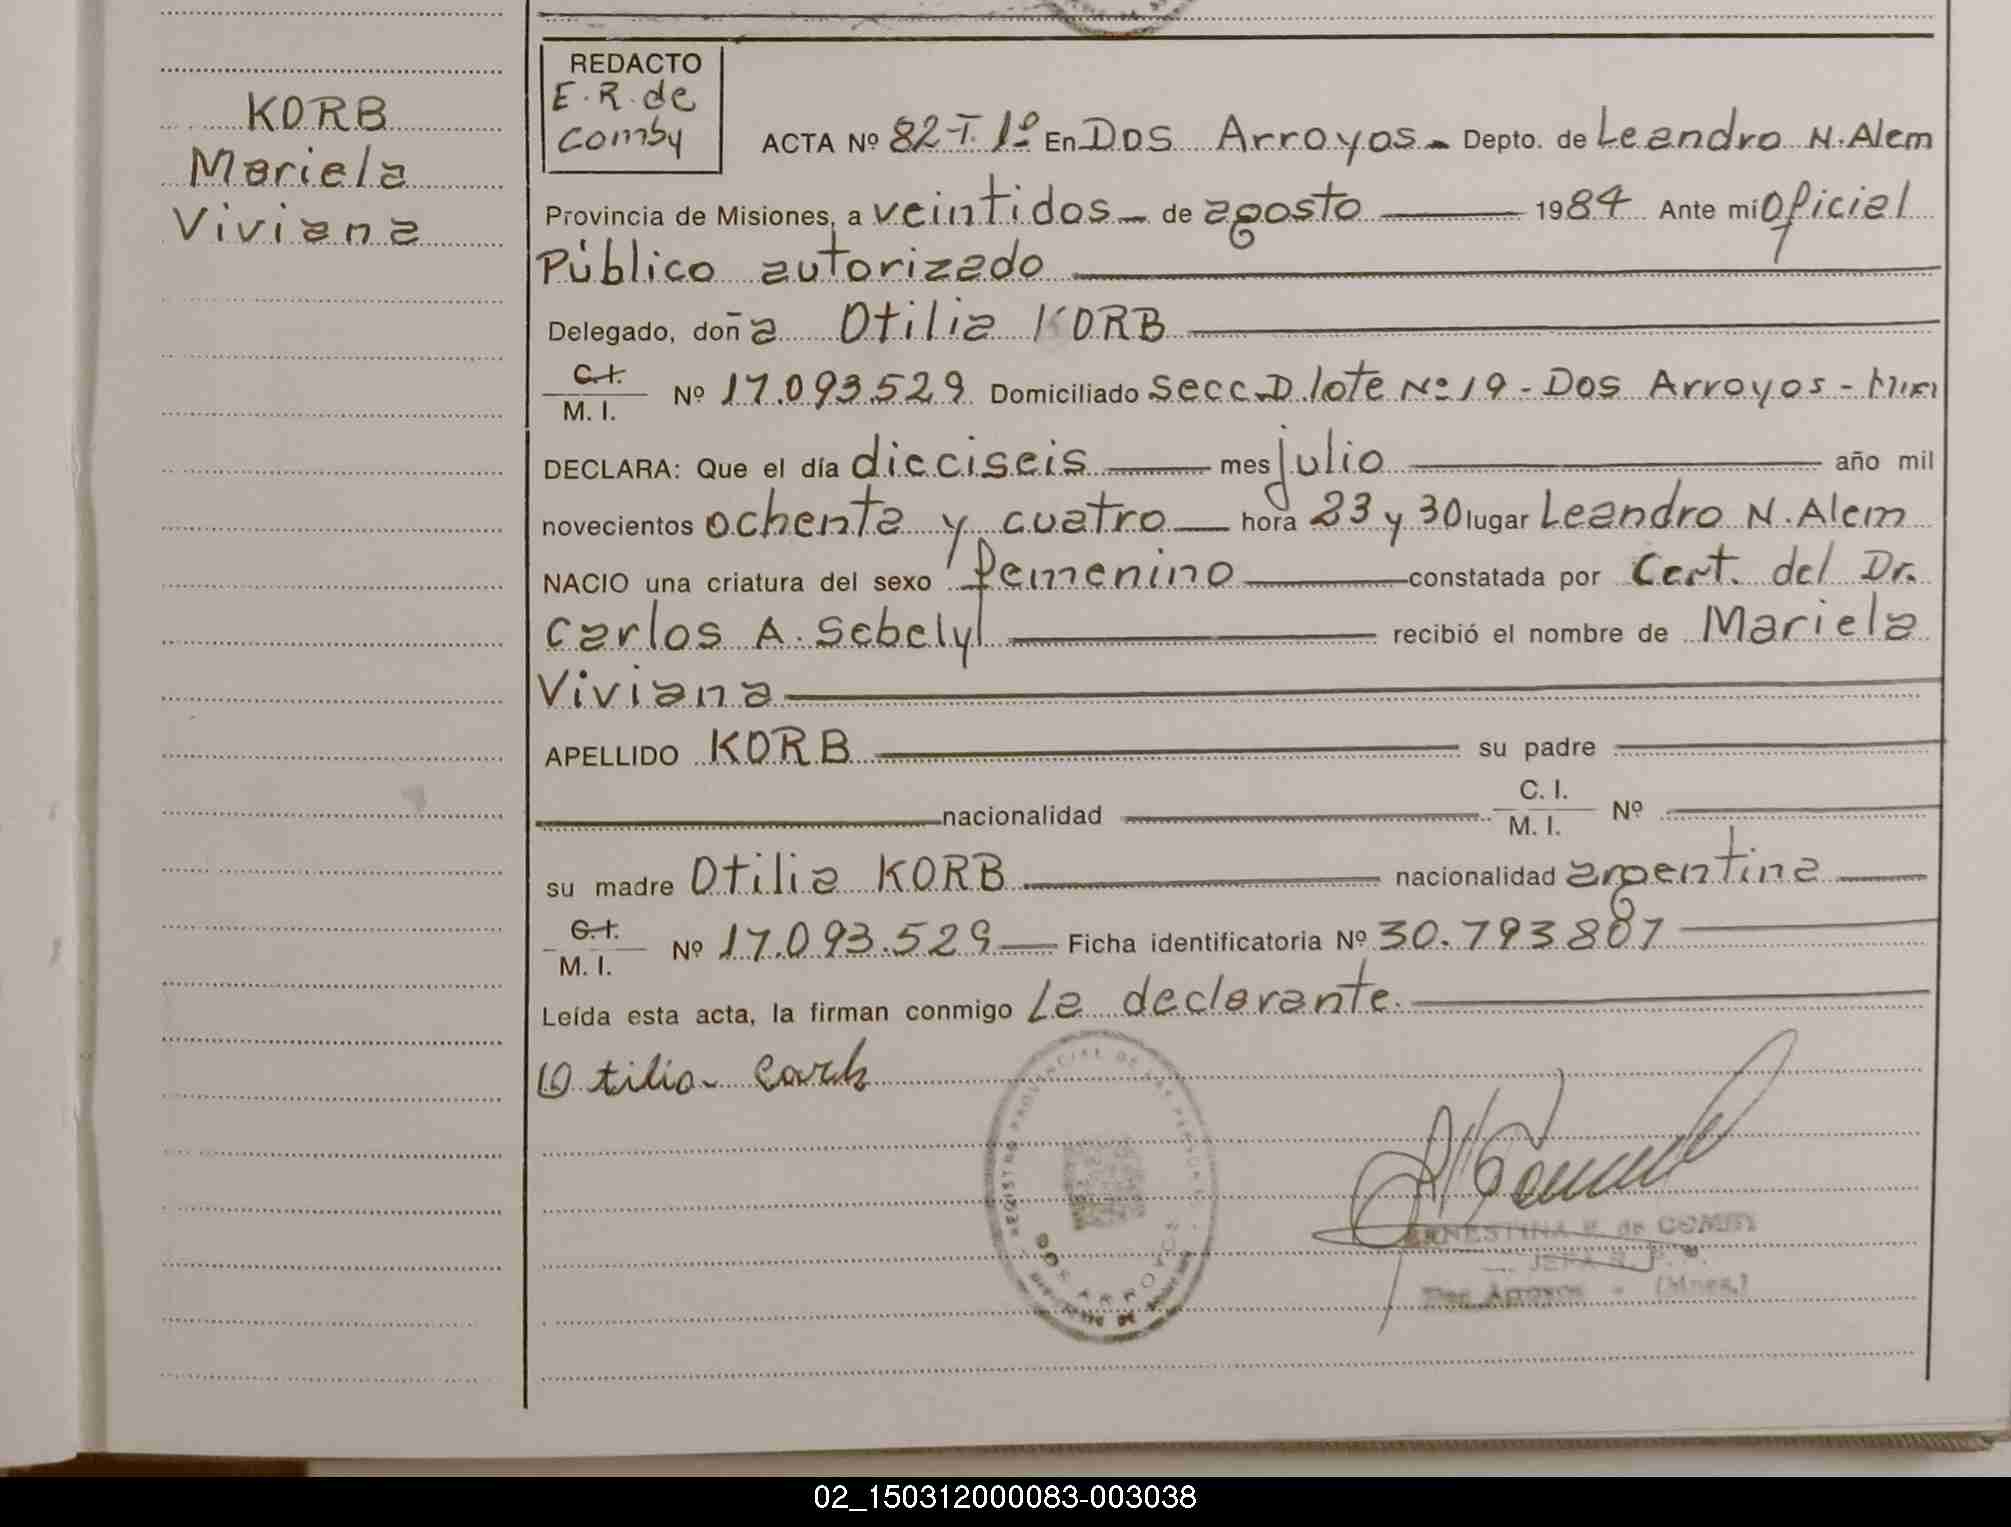 KORB
Mariela
Viviana
REDACTO
E.R. de
Comby
ACTA Nº 82-T.1º En Dos Arroyos Depto. de Leandro N. Alem
Provincia de Misiones, a veintidos de agosto 1984 Ante mi Oficial
Público autorizado
Delegado, doña Otilia KORB
C.I.
M. I. Nº 17.093.529 Domiciliado Secc. D. lote Nº 19 - Dos Arroyos -
DECLARA: Que el día dieciseis mes julio año mil
novecientos ochenta y cuatro hora 23 y 30 lugar Leandro N. Alem
NACIO una criatura del sexo femenino constatada por Cert. del Dr.
Carlos A. Sebelyl recibió el nombre de Mariela
Viviana
APELLIDO KORB su padre
nacionalidad C. I. Nº
M. I.
su madre Otilia KORB nacionalidad argentina
C.I.
M. I. Nº 17.093.529 Ficha identificatoria Nº 30.793.887
Leída esta acta, la firman conmigo La declarante.
Otilia Corb
REGISTRO PROVINCIAL DE LAS PERSONAS
DOS ARROYOS
ERNESTINA R. de COMBY
JEFA R. P. P.
Dos Arroyos - (Mnes.)
02_150312000083-003038